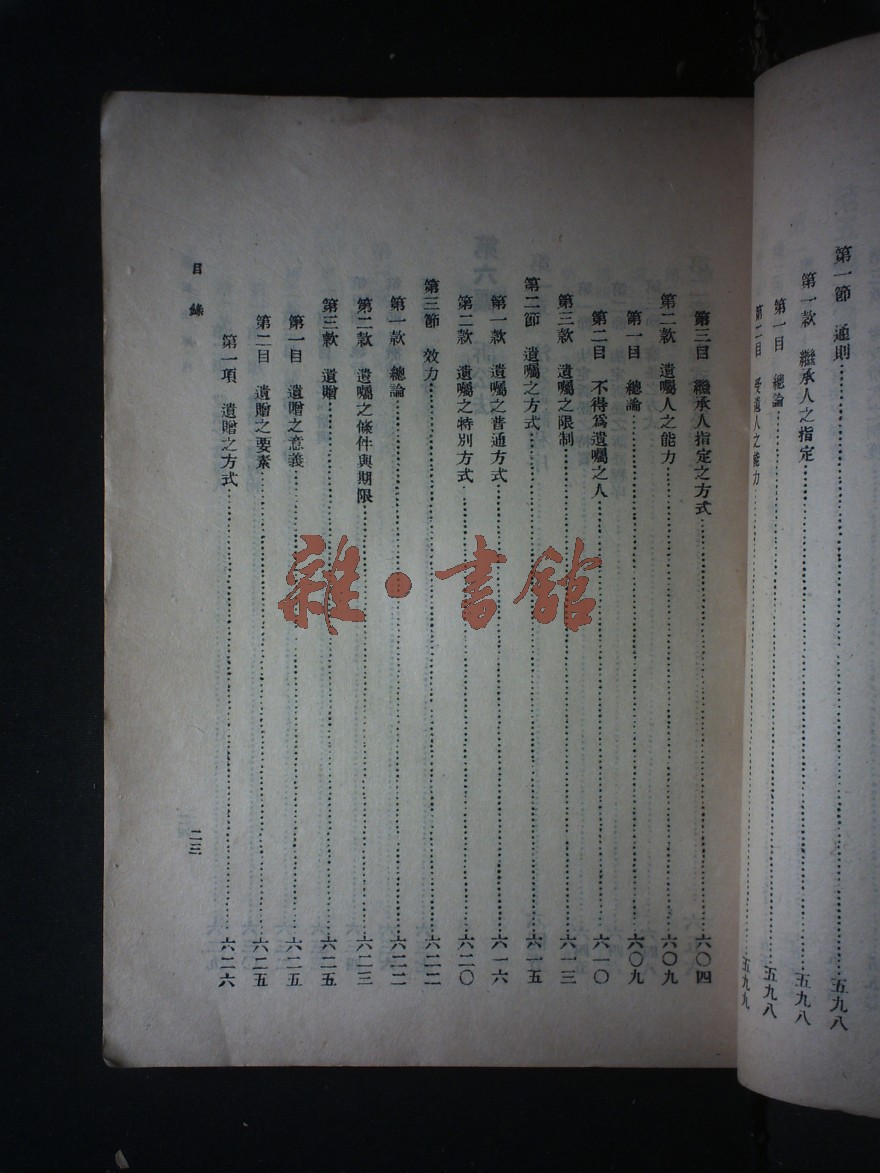 第一節　通則……五九八
第一款　繼承人之指定……五九八
第一目　總論……五九八
第二目　受遺人之能力……五九九
第三目　繼承人指定之方式……六〇四
第二款　遺囑人之能力……六〇九
第一目　總論……六〇九
第二目　不得爲遺囑之人……六一〇
第三款　遺囑之限制……六一三
第二節　遺囑之方式……六一五
第一款　遺囑之普通方式……六一六
第二款　遺囑之特別方式……六二〇
第三節　效力……六二二
第一款　總論……六二二
第二款　遺囑之條件與期限……六二三
第三款　遺贈……六二五
第一目　遺贈之意義……六二五
第二目　遺贈之要素……六二五
第一項　遺贈之方式……六二六
目錄
二三
雜·書館